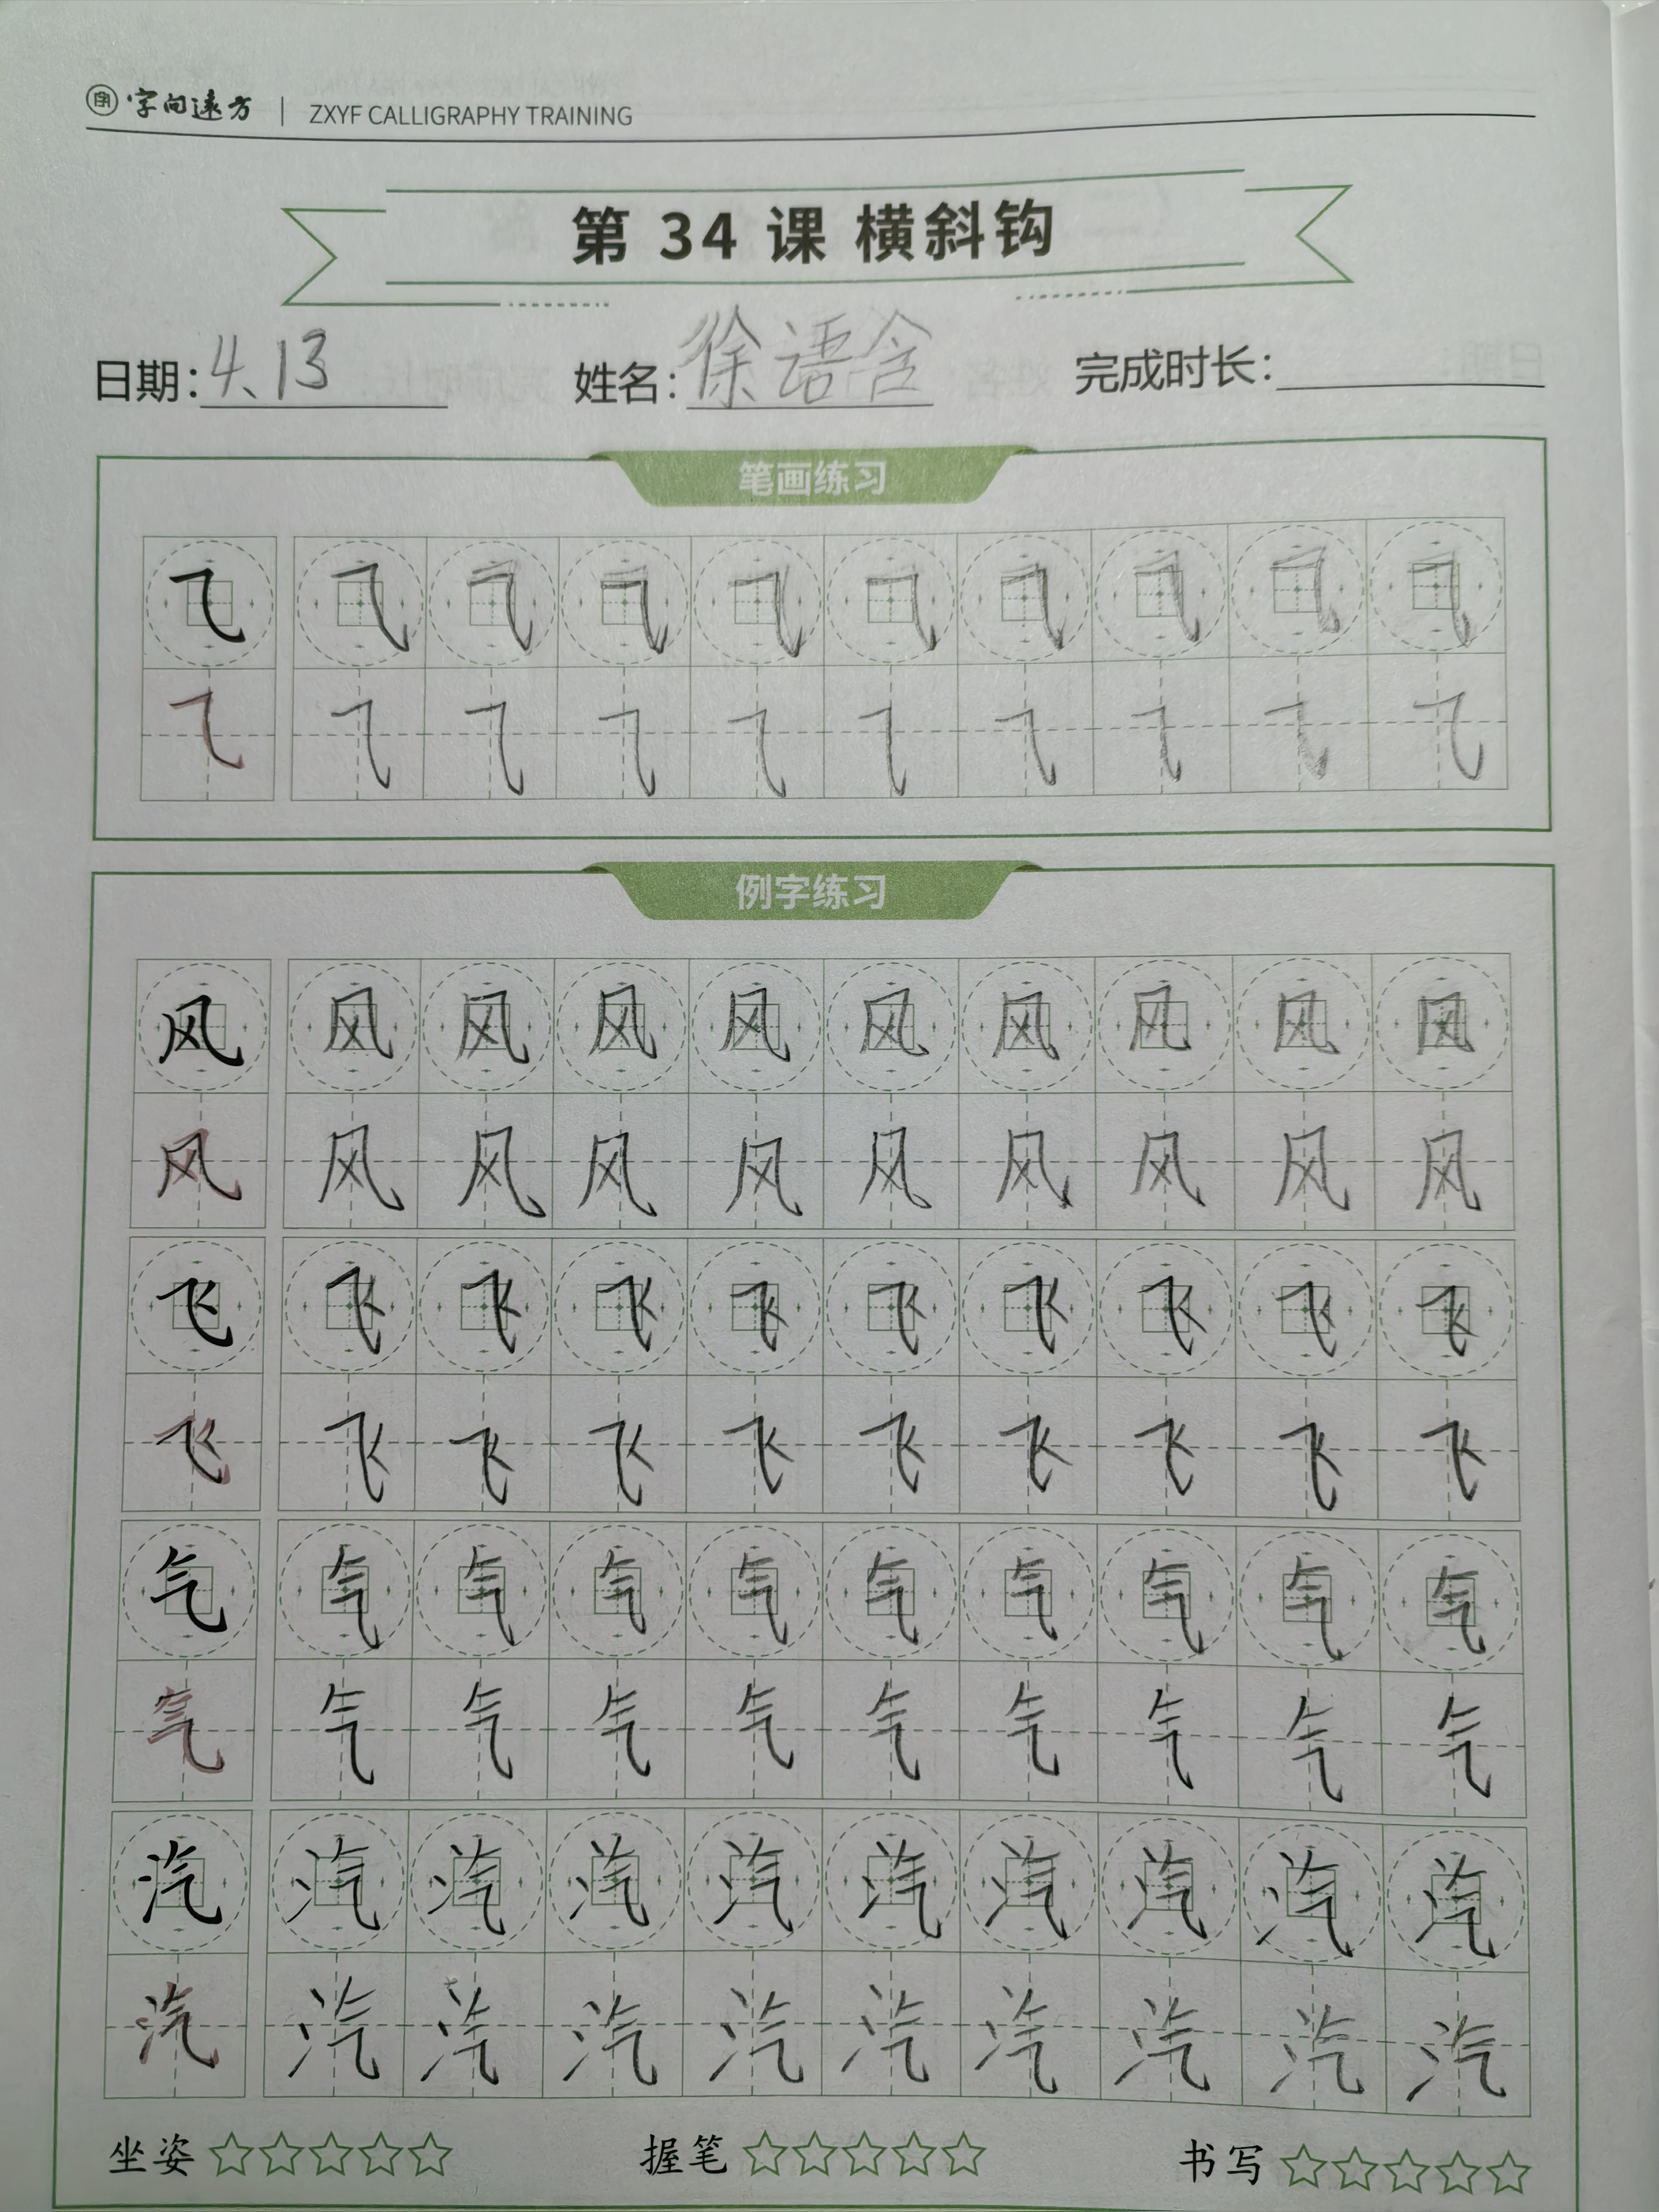 字向远方 | ZXYF CALLIGRAPHY TRAINING
第 34 课 横斜钩
日期: 4、13 姓名: 徐语含 完成时长:
笔画练习
⺄ ⺄ ⺄ ⺄ ⺄ ⺄ ⺄ ⺄ ⺄ ⺄
⺄ ⺄ ⺄ ⺄ ⺄ ⺄ ⺄ ⺄ ⺄ ⺄
例字练习
风 风 风 风 风 风 风 风 风 风
风 风 风 风 风 风 风 风 风 风
飞 飞 飞 飞 飞 飞 飞 飞 飞 飞
飞 飞 飞 飞 飞 飞 飞 飞 飞 飞
气 气 气 气 气 气 气 气 气 气
气 气 气 气 气 气 气 气 气 气
汽 汽 汽 汽 汽 汽 汽 汽 汽 汽
汽 汽 汽 汽 汽 汽 汽 汽 汽 汽
坐姿 ☆☆☆☆☆ 握笔 ☆☆☆☆☆ 书写 ☆☆☆☆☆